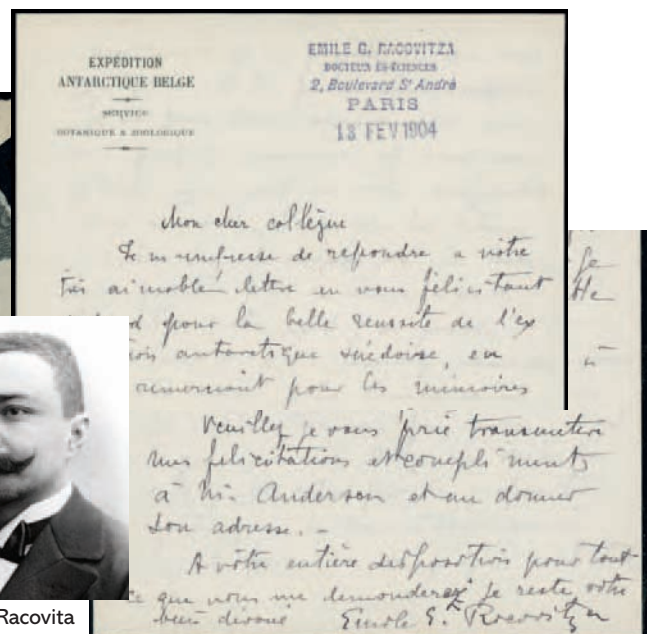 EXPÉDITION
ANTARCTIQUE BELGE
SERVICE
BOTANIQUE & ZOOLOGIQUE
EMILE G. RACOVITZA
DOCTEUR ÈS-SCIENCES
2, Boulevard St André
PARIS
13 FEV 1904
Mon cher collègue
Je m'empresse de repondre a votre
très aimable lettre en vous félicitant
pour la belle reussite de l'ex
antarctique suédoise, en
pour les mémoires
Veuillez je vous prie transmettre
mes félicitations et compliments
à Mr. Anderson et me donner
son adresse. -
A vôtre entière disposition pour tout
ce que vous me demanderez je reste votre
bien dévoué Emile G. Racovitza
Racovita